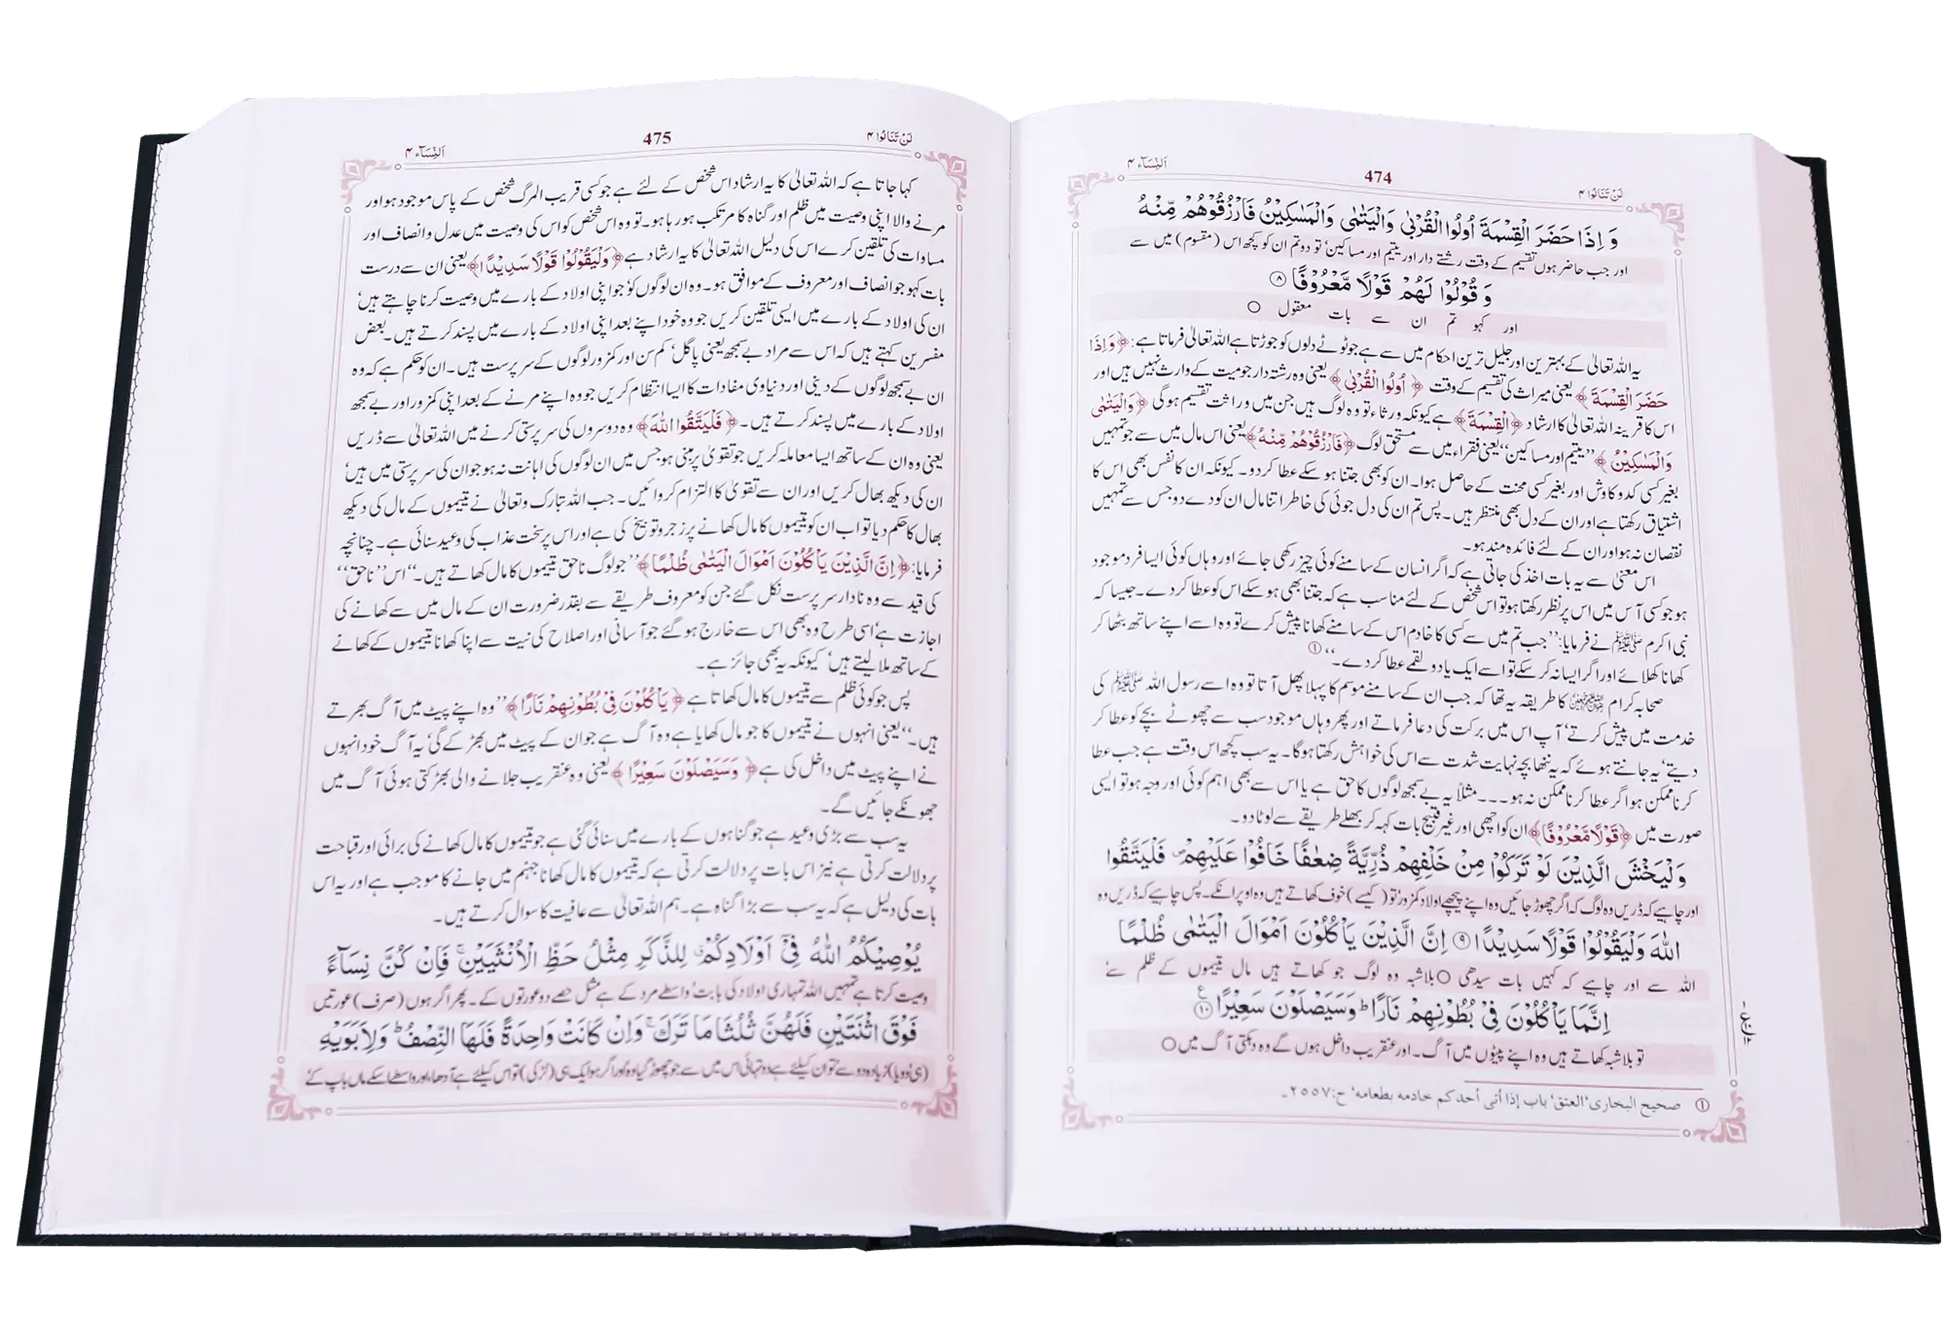 لَنْ تَنَالُوا ۴
474
اَلنِّسَآء ۴
وَ اِذَا حَضَرَ الْقِسْمَةَ اُولُوا الْقُرْبٰى وَالْيَتٰمٰى وَالْمَسٰكِيْنُ فَارْزُقُوْهُمْ مِّنْهُ
اور جب حاضر ہوں تقسیم کے وقت رشتے دار اور یتیم اور مساکین' تو دو تم ان کو کچھ اس (مقسوم) میں سے
وَ قُوْلُوْا لَهُمْ قَوْلًا مَّعْرُوْفًا ۸
اور کہو تم ان سے بات معقول ○
یہ اللہ تعالیٰ کے بہترین اور جلیل ترین احکام میں سے ہے جو ٹوٹے دلوں کو جوڑتا ہے اللہ تعالیٰ فرماتا ہے: ﴿وَاِذَا
حَضَرَ الْقِسْمَةَ﴾ یعنی میراث کی تقسیم کے وقت ﴿اُولُوا الْقُرْبٰى﴾ یعنی وہ رشتہ دار جو میت کے وارث نہیں ہیں اور
اس کا قرینہ اللہ تعالیٰ کا ارشاد ﴿الْقِسْمَةَ﴾ ہے کیونکہ ورثاء تو وہ لوگ ہیں جن میں وراثت تقسیم ہوگی ﴿وَالْيَتٰمٰى
وَالْمَسٰكِيْنُ﴾ ''یتیم اور مساکین'' یعنی فقراء میں سے مستحق لوگ ﴿فَارْزُقُوْهُمْ مِّنْهُ﴾ یعنی اس مال میں سے جو تمہیں
بغیر کسی کدو کاوش اور بغیر کسی محنت کے حاصل ہوا۔ ان کو بھی جتنا ہو سکے عطا کر دو۔ کیونکہ ان کا نفس بھی اس کا
اشتیاق رکھتا ہے اور ان کے دل بھی منتظر ہیں۔ پس تم ان کی دل جوئی کی خاطر اتنا مال ان کو دے دو جس سے تمہیں
نقصان نہ ہو اور ان کے لئے فائدہ مند ہو۔
اس معنیٰ سے یہ بات اخذ کی جاتی ہے کہ اگر انسان کے سامنے کوئی چیز رکھی جائے اور وہاں کوئی ایسا فرد موجود
ہو جو کسی آس میں اس پر نظر رکھتا ہو تو اس شخص کے لئے مناسب ہے کہ جتنا بھی ہو سکے اس کو عطا کر دے۔ جیسا کہ
نبی اکرم ﷺ نے فرمایا: ''جب تم میں سے کسی کا خادم اس کے سامنے کھانا پیش کرے تو وہ اسے اپنے ساتھ بٹھا کر
کھانا کھلائے اور اگر ایسا نہ کر سکے تو اسے ایک یا دو لقمے عطا کر دے۔'' ①
صحابہ کرام کا طریقہ یہ تھا کہ جب ان کے سامنے موسم کا پہلا پھل آتا تو وہ اسے رسول اللہ ﷺ کی
خدمت میں پیش کرتے' آپ اس میں برکت کی دعا فرماتے اور پھر وہاں موجود سب سے چھوٹے بچے کو عطا کر
دیتے' یہ جانتے ہوئے کہ یہ ننھا بچہ نہایت شدت سے اس کی خواہش رکھتا ہوگا۔ یہ سب کچھ اس وقت ہے جب عطا
کرنا ممکن ہو اگر عطا کرنا ممکن نہ ہو۔۔۔ مثلاً یہ بے سمجھ لوگوں کا حق ہے یا اس سے بھی اہم کوئی اور وجہ ہو تو ایسی
صورت میں ﴿قَوْلًا مَّعْرُوْفًا﴾ ان کو اچھی اور غیر قبیح بات کہہ کر بھلے طریقے سے لوٹا دو۔
وَلْيَخْشَ الَّذِيْنَ لَوْ تَرَكُوْا مِنْ خَلْفِهِمْ ذُرِّيَّةً ضِعٰفًا خَافُوْا عَلَيْهِمْ فَلْيَتَّقُوا
اور چاہیے کہ ڈریں وہ لوگ کہ اگر چھوڑ جائیں وہ اپنے پیچھے اولاد کمزور' تو (کیسے) خوف کھاتے ہیں وہ اوپر انکے۔ پس چاہیے کہ ڈریں وہ
اللّٰهَ وَلْيَقُوْلُوْا قَوْلًا سَدِيْدًا ۹ اِنَّ الَّذِيْنَ يَاْكُلُوْنَ اَمْوَالَ الْيَتٰمٰى ظُلْمًا
اللہ سے اور چاہیے کہ کہیں بات سیدھی ○ بلاشبہ وہ لوگ جو کھاتے ہیں مال یتیموں کے ظلم سے'
اِنَّمَا يَاْكُلُوْنَ فِيْ بُطُوْنِهِمْ نَارًا ؕ وَسَيَصْلَوْنَ سَعِيْرًا ۱۰
تو بلاشبہ کھاتے ہیں وہ اپنے پیٹوں میں آگ۔ اور عنقریب داخل ہوں گے وہ دہکتی آگ میں ○
① صحیح البخاری' العتق' باب إذا أتی أحدکم خادمه بطعامه' ح: ۲۵۵۷۔
لَنْ تَنَالُوا ۴
475
اَلنِّسَآء ۴
کہا جاتا ہے کہ اللہ تعالیٰ کا یہ ارشاد اس شخص کے لئے ہے جو کسی قریب المرگ شخص کے پاس موجود ہو اور
مرنے والا اپنی وصیت میں ظلم اور گناہ کا مرتکب ہو رہا ہو۔ تو وہ اس شخص کو اس کی وصیت میں عدل و انصاف اور
مساوات کی تلقین کرے اس کی دلیل اللہ تعالیٰ کا یہ ارشاد ہے ﴿وَلْيَقُوْلُوْا قَوْلًا سَدِيْدًا﴾ یعنی ان سے درست
بات کہو جو انصاف اور معروف کے موافق ہو۔ وہ ان لوگوں کو' جو اپنی اولاد کے بارے میں وصیت کرنا چاہتے ہیں'
ان کی اولاد کے بارے میں ایسی تلقین کریں جو وہ خود اپنے بعد اپنی اولاد کے بارے میں پسند کرتے ہیں۔ بعض
مفسرین کہتے ہیں کہ اس سے مراد بے سمجھ یعنی پاگل' کم سن اور کمزور لوگوں کے سرپرست ہیں۔ ان کو حکم ہے کہ وہ
ان بے سمجھ لوگوں کے دینی اور دنیاوی مفادات کا ایسا انتظام کریں جو وہ اپنے مرنے کے بعد اپنی کمزور اور بے سمجھ
اولاد کے بارے میں پسند کرتے ہیں۔ ﴿فَلْيَتَّقُوا اللّٰهَ﴾ وہ دوسروں کی سرپرستی کرنے میں اللہ تعالیٰ سے ڈریں
یعنی وہ ان کے ساتھ ایسا معاملہ کریں جو تقویٰ پر مبنی ہو جس میں ان لوگوں کی اہانت نہ ہو جو ان کی سرپرستی میں ہیں'
ان کی دیکھ بھال کریں اور ان سے تقویٰ کا التزام کروائیں۔ جب اللہ تبارک وتعالیٰ نے یتیموں کے مال کی دیکھ
بھال کا حکم دیا تو اب ان کو یتیموں کا مال کھانے پر زجر و توبیخ کی ہے اور اس پر سخت عذاب کی وعید سنائی ہے۔ چنانچہ
فرمایا: ﴿اِنَّ الَّذِيْنَ يَاْكُلُوْنَ اَمْوَالَ الْيَتٰمٰى ظُلْمًا﴾ ''جو لوگ ناحق یتیموں کا مال کھاتے ہیں۔'' اس ''ناحق''
کی قید سے وہ نادار سرپرست نکل گئے جن کو معروف طریقے سے بقدر ضرورت ان کے مال میں سے کھانے کی
اجازت ہے' اسی طرح وہ بھی اس سے خارج ہو گئے جو آسانی اور اصلاح کی نیت سے اپنا کھانا یتیموں کے کھانے
کے ساتھ ملا لیتے ہیں' کیونکہ یہ بھی جائز ہے۔
پس جو کوئی ظلم سے یتیموں کا مال کھاتا ہے ﴿يَاْكُلُوْنَ فِيْ بُطُوْنِهِمْ نَارًا﴾ ''وہ اپنے پیٹ میں آگ بھرتے
ہیں۔'' یعنی انہوں نے یتیموں کا جو مال کھایا ہے وہ آگ ہے جو ان کے پیٹ میں بھڑکے گی' یہ آگ خود انہوں
نے اپنے پیٹ میں داخل کی ہے ﴿وَسَيَصْلَوْنَ سَعِيْرًا﴾ یعنی وہ عنقریب جلانے والی بھڑکتی ہوئی آگ میں
جھونکے جائیں گے۔
یہ سب سے بڑی وعید ہے جو گناہوں کے بارے میں سنائی گئی ہے جو یتیموں کا مال کھانے کی برائی اور قباحت
پر دلالت کرتی ہے نیز اس بات پر دلالت کرتی ہے کہ یتیموں کا مال کھانا جہنم میں جانے کا موجب ہے اور یہ اس
بات کی دلیل ہے کہ یہ سب سے بڑا گناہ ہے۔ ہم اللہ تعالیٰ سے عافیت کا سوال کرتے ہیں۔
يُوْصِيْكُمُ اللّٰهُ فِيْٓ اَوْلَادِكُمْ لِلذَّكَرِ مِثْلُ حَظِّ الْاُنْثَيَيْنِ ۚ فَاِنْ كُنَّ نِسَآءً
وصیت کرتا ہے تمہیں اللہ تمہاری اولاد کی بابت' واسطے مرد کے ہے مثل حصے دو عورتوں کے۔ پھر اگر ہوں (صرف) عورتیں
فَوْقَ اثْنَتَيْنِ فَلَهُنَّ ثُلُثَا مَا تَرَكَ ۚ وَاِنْ كَانَتْ وَاحِدَةً فَلَهَا النِّصْفُ ؕ وَلِاَبَوَيْهِ
(ہی دو یا) زیادہ دو سے' تو ان کیلئے ہے دو تہائی اس میں سے جو چھوڑ گیا وہ' اور اگر ہو ایک ہی (لڑکی) تو اس کیلئے ہے آدھا، اور واسطے اسکے ماں باپ کے'